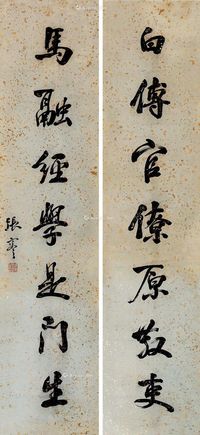 白傅官僚原散吏
馬融經學是門生
張謇